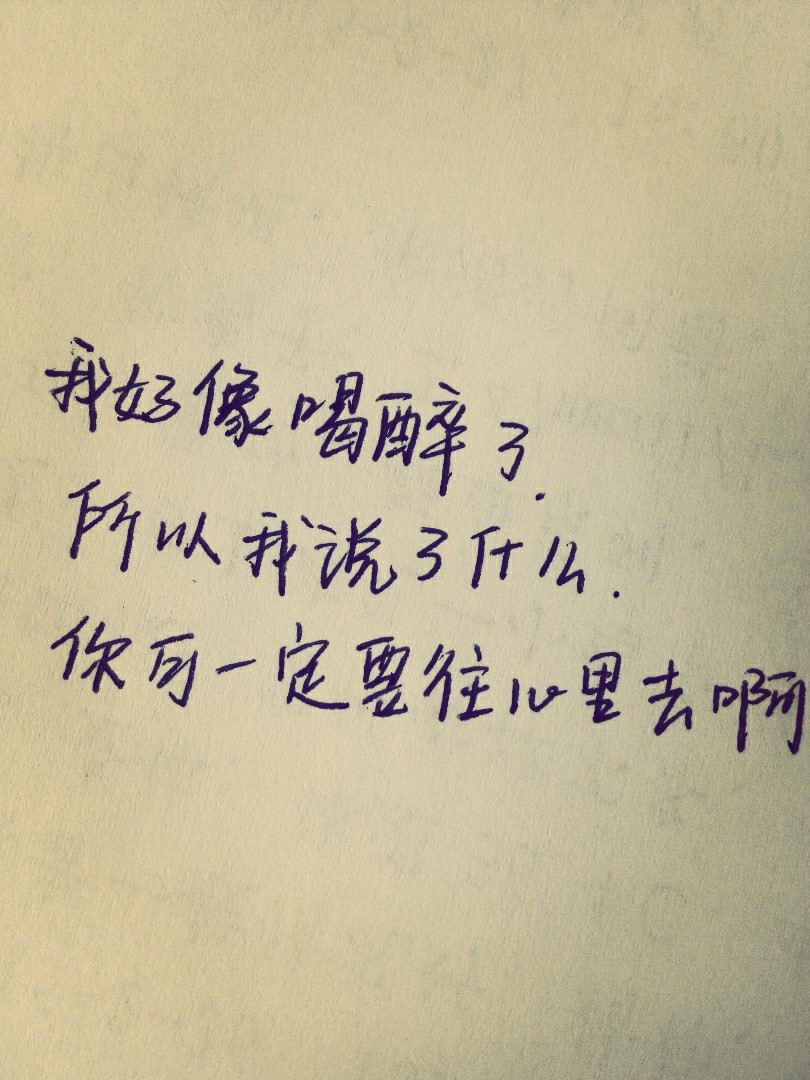 我好像喝醉了.
所以我说了什么.
你可一定要往心里去啊